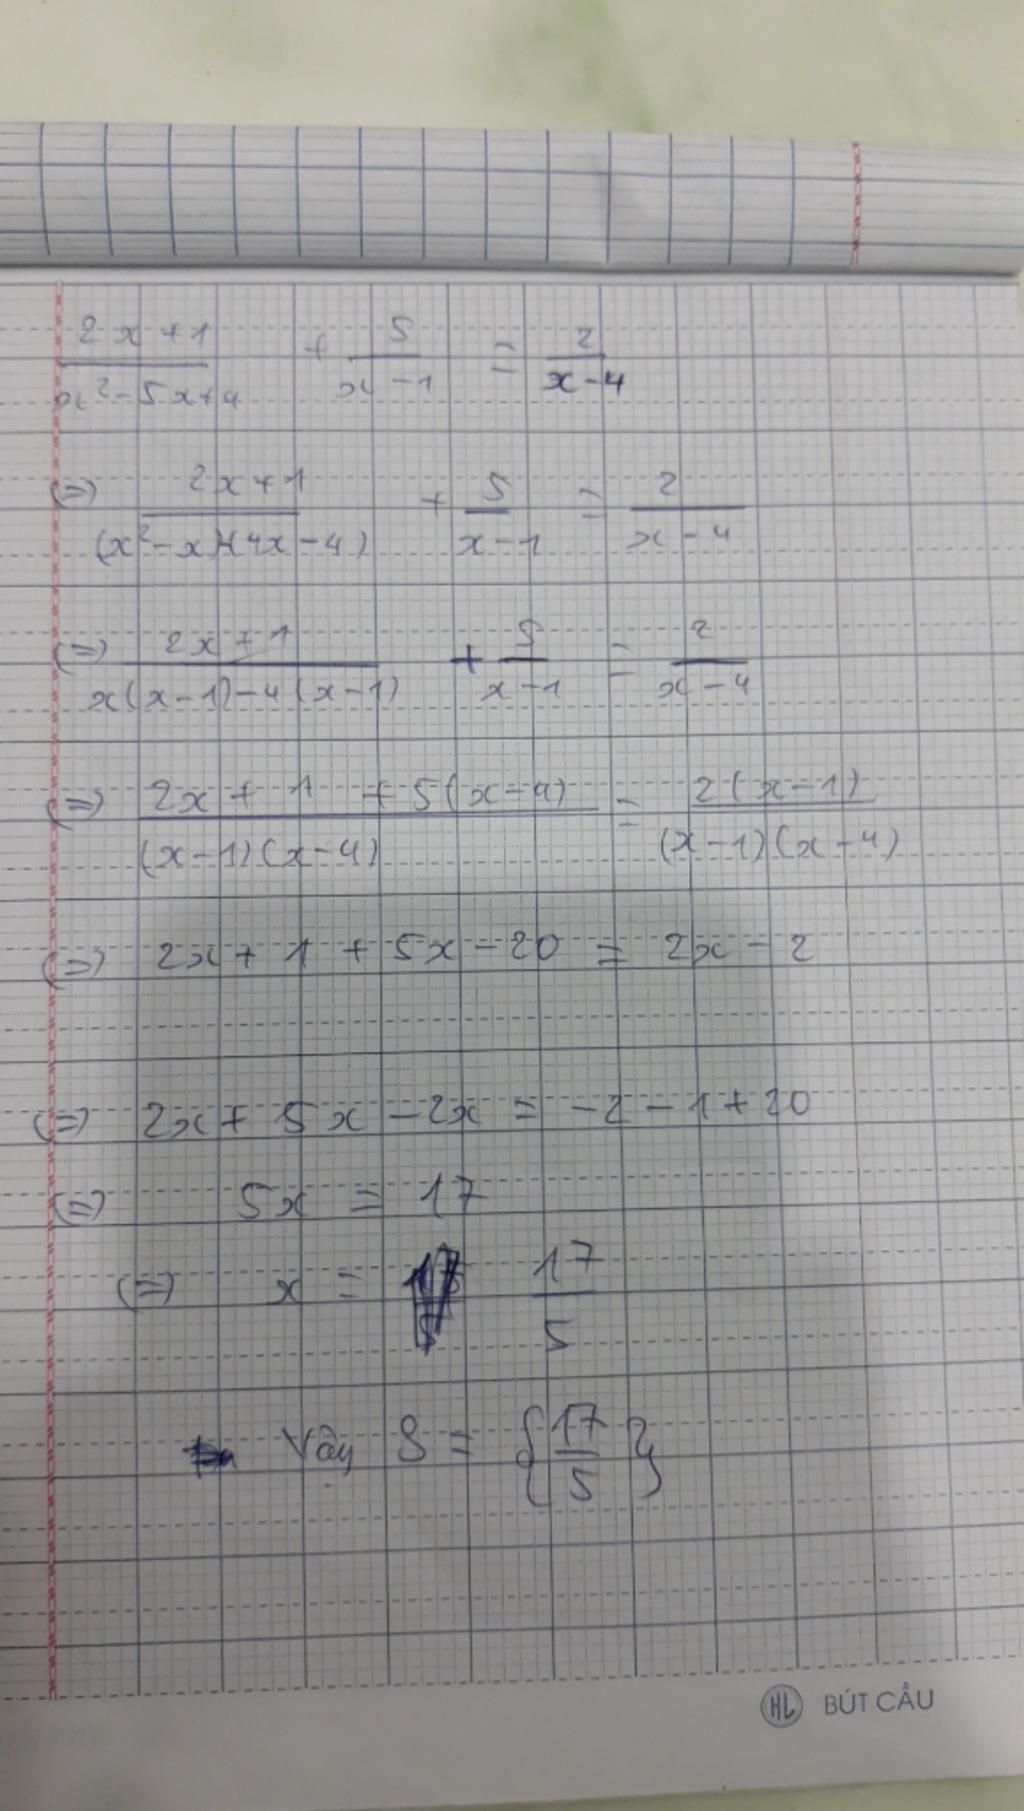 2x + 1 / x² - 5x + 4 + 5 / x - 1 = 2 / x - 4
(=) 2x + 1 / (x² - x) - (4x - 4) + 5 / x - 1 = 2 / x - 4
(=) 2x + 1 / x(x - 1) - 4(x - 1) + 5 / x - 1 = 2 / x - 4
(=) 2x + 1 + 5(x - 4) / (x - 1)(x - 4) = 2(x - 1) / (x - 1)(x - 4)
(=) 2x + 1 + 5x - 20 = 2x - 2
(=) 2x + 5x - 2x = -2 - 1 + 20
(=) 5x = 17
(=) x = 17 / 5
Vậy S = {17 / 5}
HL BÚT CẦU